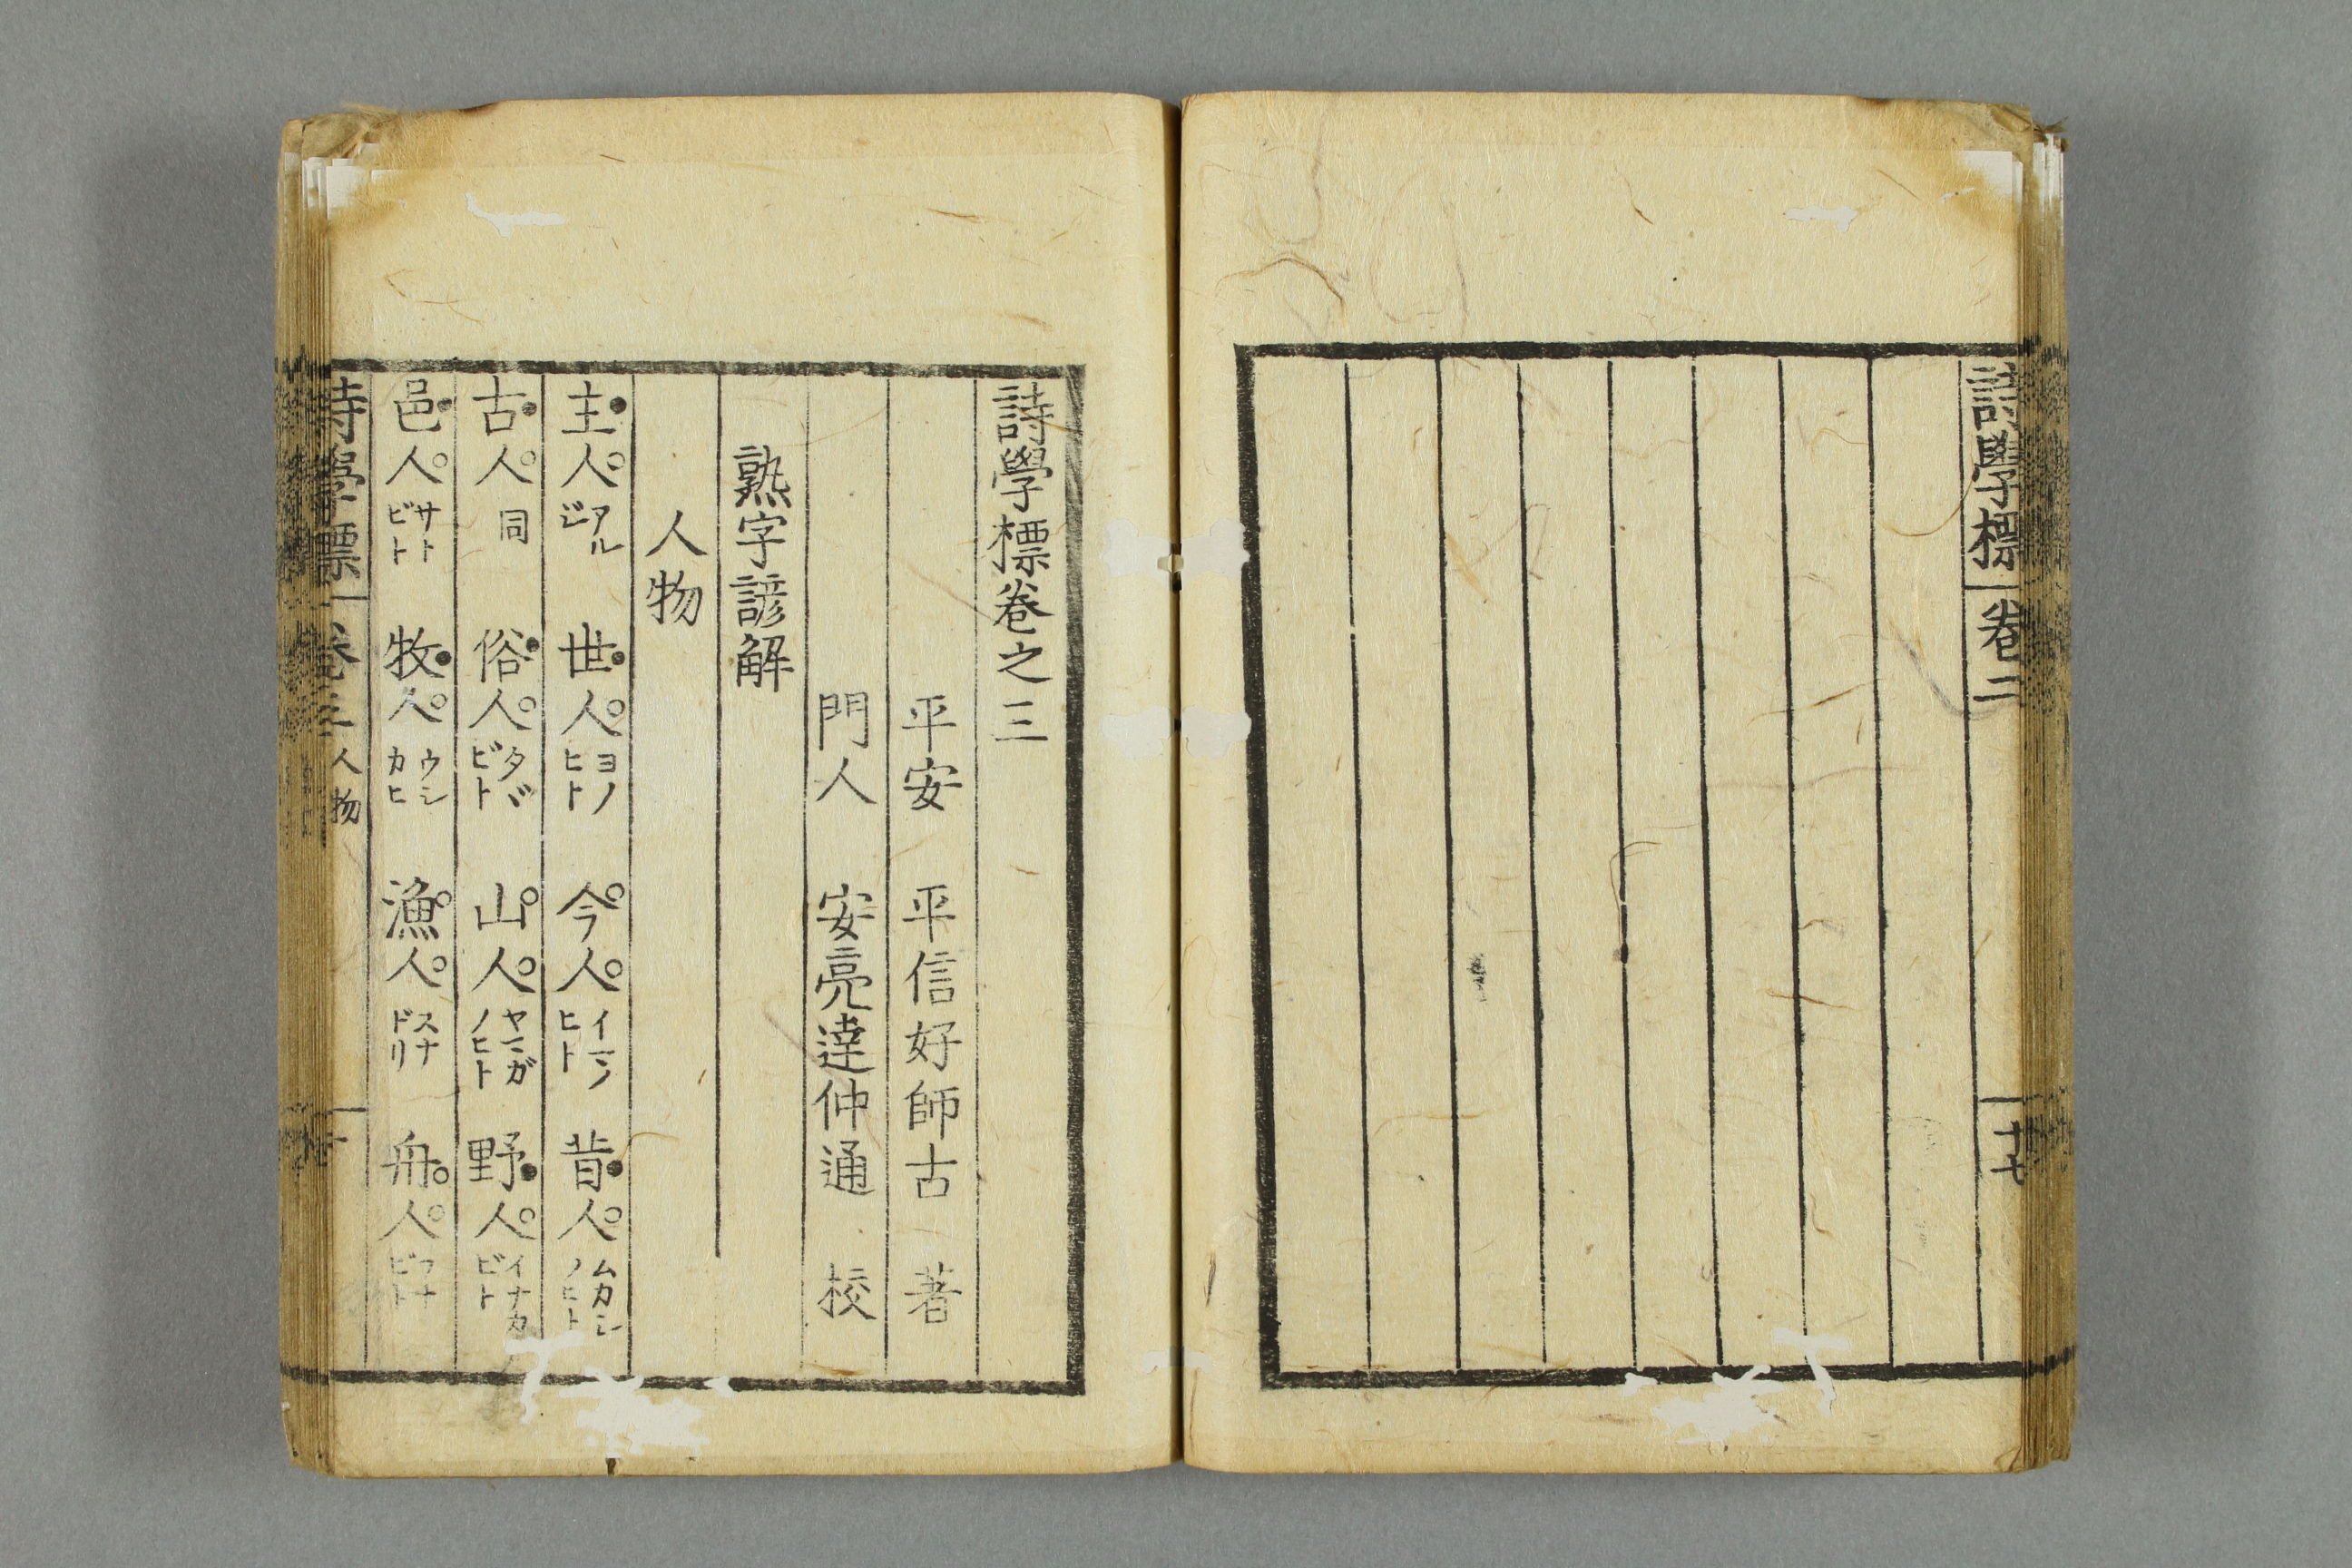 詩學標 卷二 十七
詩學標卷之三
平安 平信好師古 著
門人 安亮達仲通 校
熟字諺解
人物
主人 アルジ 世人 ヨノヒト 今人 イマノヒト 昔人 ムカシノヒト
古人 同 俗人 タヾビト 山人 ヤマガノヒト 野人 イナカビト
邑人 サトビト 牧人 ウシカヒ 漁人 スナドリ 舟人 フナビト
詩學標 卷三 人物